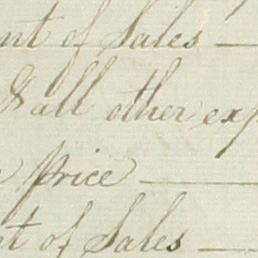 nt of Sales —
& all other exp
price —
nt of Sales —